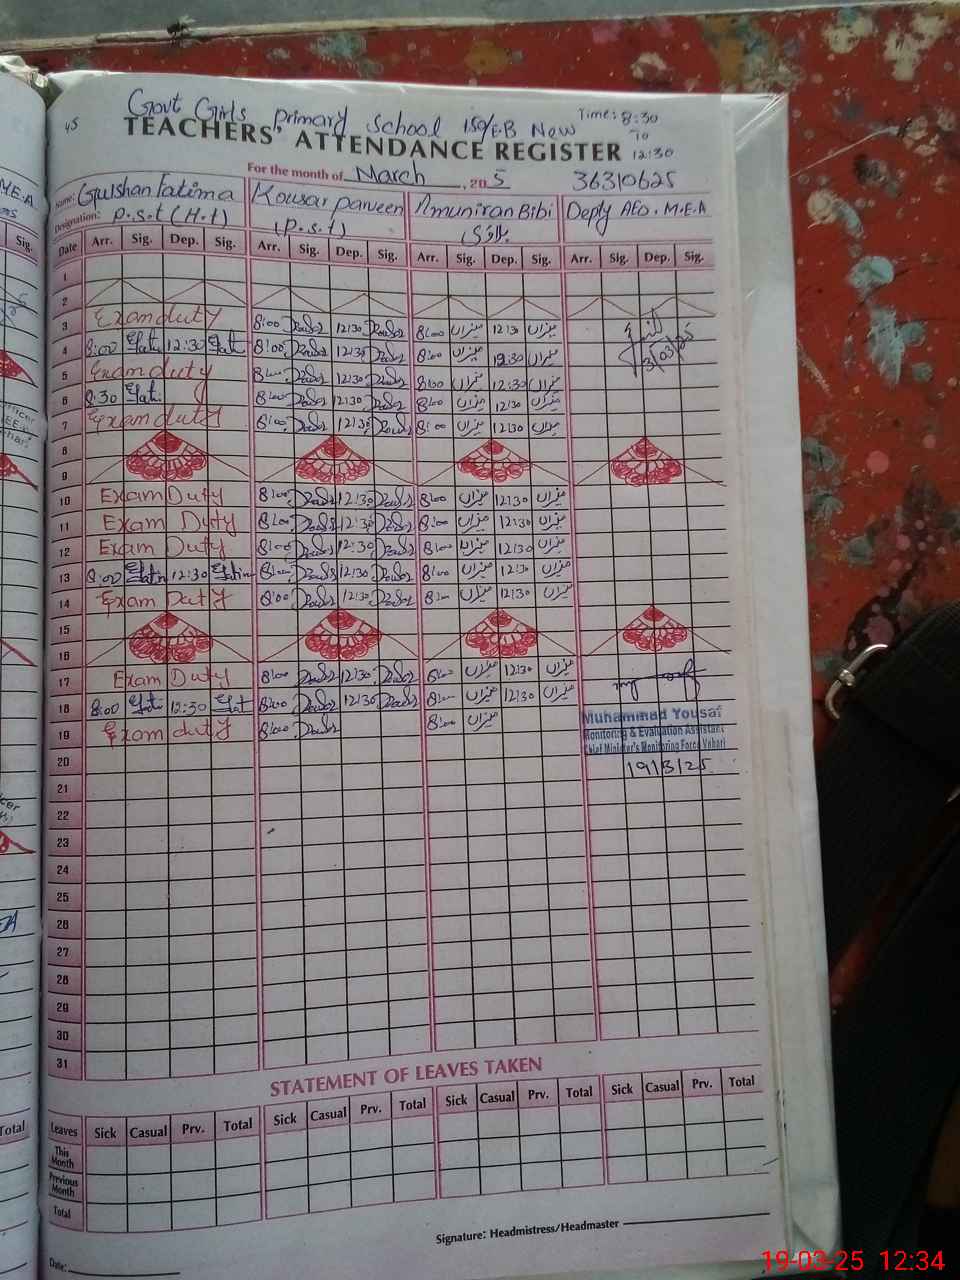 45
Govt Girls primary school 150/EB New
Time: 8:30
To
12:30
TEACHERS' ATTENDANCE REGISTER
For the month of March, 205
36310625
Name: Gulshan Fatima Kousar parveen Amuniran Bibi Depty AEO. M.E.A
Designation: P.S.T (H.t) (P.S.t)
Date Arr. Sig. Dep. Sig. Arr. Sig. Dep. Sig. Arr. Sig. Dep. Sig. Arr. Sig. Dep. Sig.
1
2
3 Exam duty 8:00 12:30 8:00 میزاں 12:30 میزاں
4 8:00 12:30 8:00 12:30 8:00 میزاں 12:30 میزاں 3/03/25
5 Exam duty 8:00 12:30 8:00 میزاں 12:30 میزاں
6 8:30 8:00 12:30 8:00 میزاں 12:30 میزاں
7 Exam duty 8:00 12:30 8:00 میزاں 12:30 میزاں
8
9
10 Exam Duty 8:00 12:30 8:00 میزاں 12:30 میزاں
11 Exam Duty 8:00 12:30 8:00 میزاں 12:30 میزاں
12 Exam Duty 8:00 12:30 8:00 میزاں 12:30 میزاں
13 8:00 12:30 8:00 12:30 8:00 میزاں 12:30 میزاں
14 Exam Duty 8:00 12:30 8:00 میزاں 12:30 میزاں
15
16
17 Exam Duty 8:00 12:30 8:00 میزاں 12:30 میزاں
18 8:00 12:30 8:00 12:30 8:00 میزاں 12:30 میزاں
19 Exam duty 8:00 8:00 میزاں
Muhammad Yousaf
Monitoring & Evaluation Assistant
Chief Minister's Monitoring Force Vehari
19/3/25
20
21
22
23
24
25
26
27
28
29
30
31
STATEMENT OF LEAVES TAKEN
Leaves Sick Casual Prv. Total Sick Casual Prv. Total Sick Casual Prv. Total Sick Casual Prv. Total
This Month
Previous Month
Total
Signature: Headmistress/Headmaster
Date:
M.E.A
Sig.
Total
19-03-25 12:34